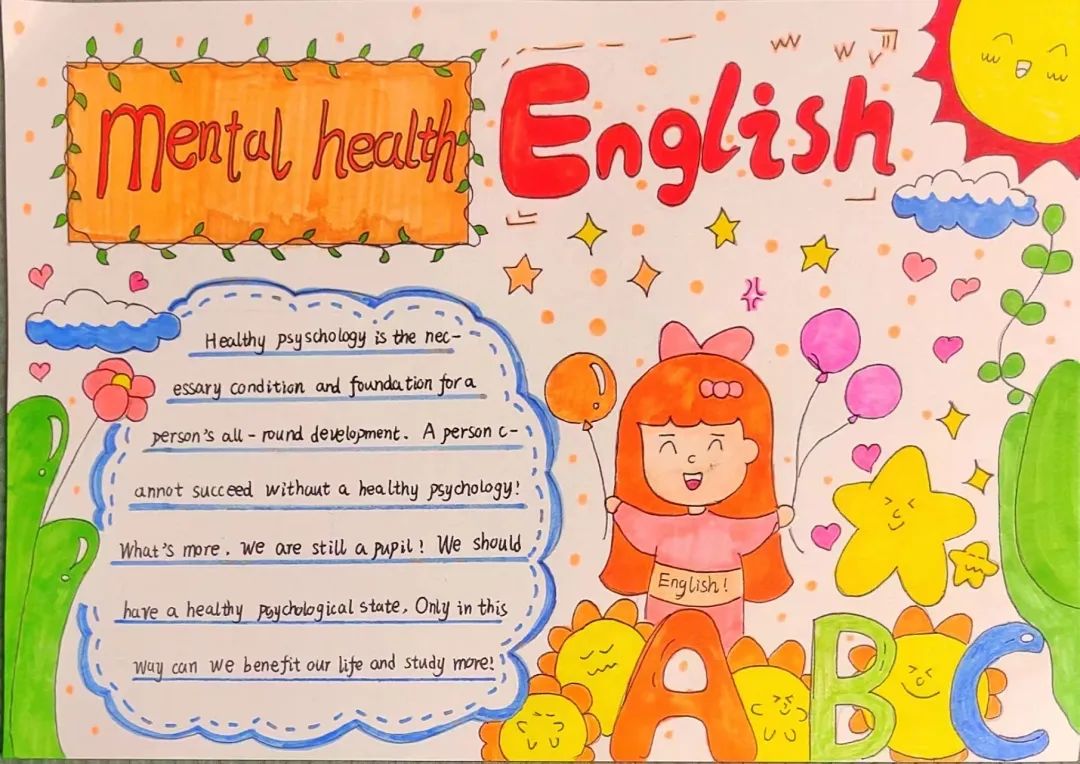 Mental health
English
Healthy psyschology is the nec-
essary condition and foundation for a
person's all-round development. A person c-
annot succeed without a healthy psychology!
What's more, we are still a pupil! We should
have a healthy psychological state, Only in this
way can we benefit our life and study more!
English!
ABC